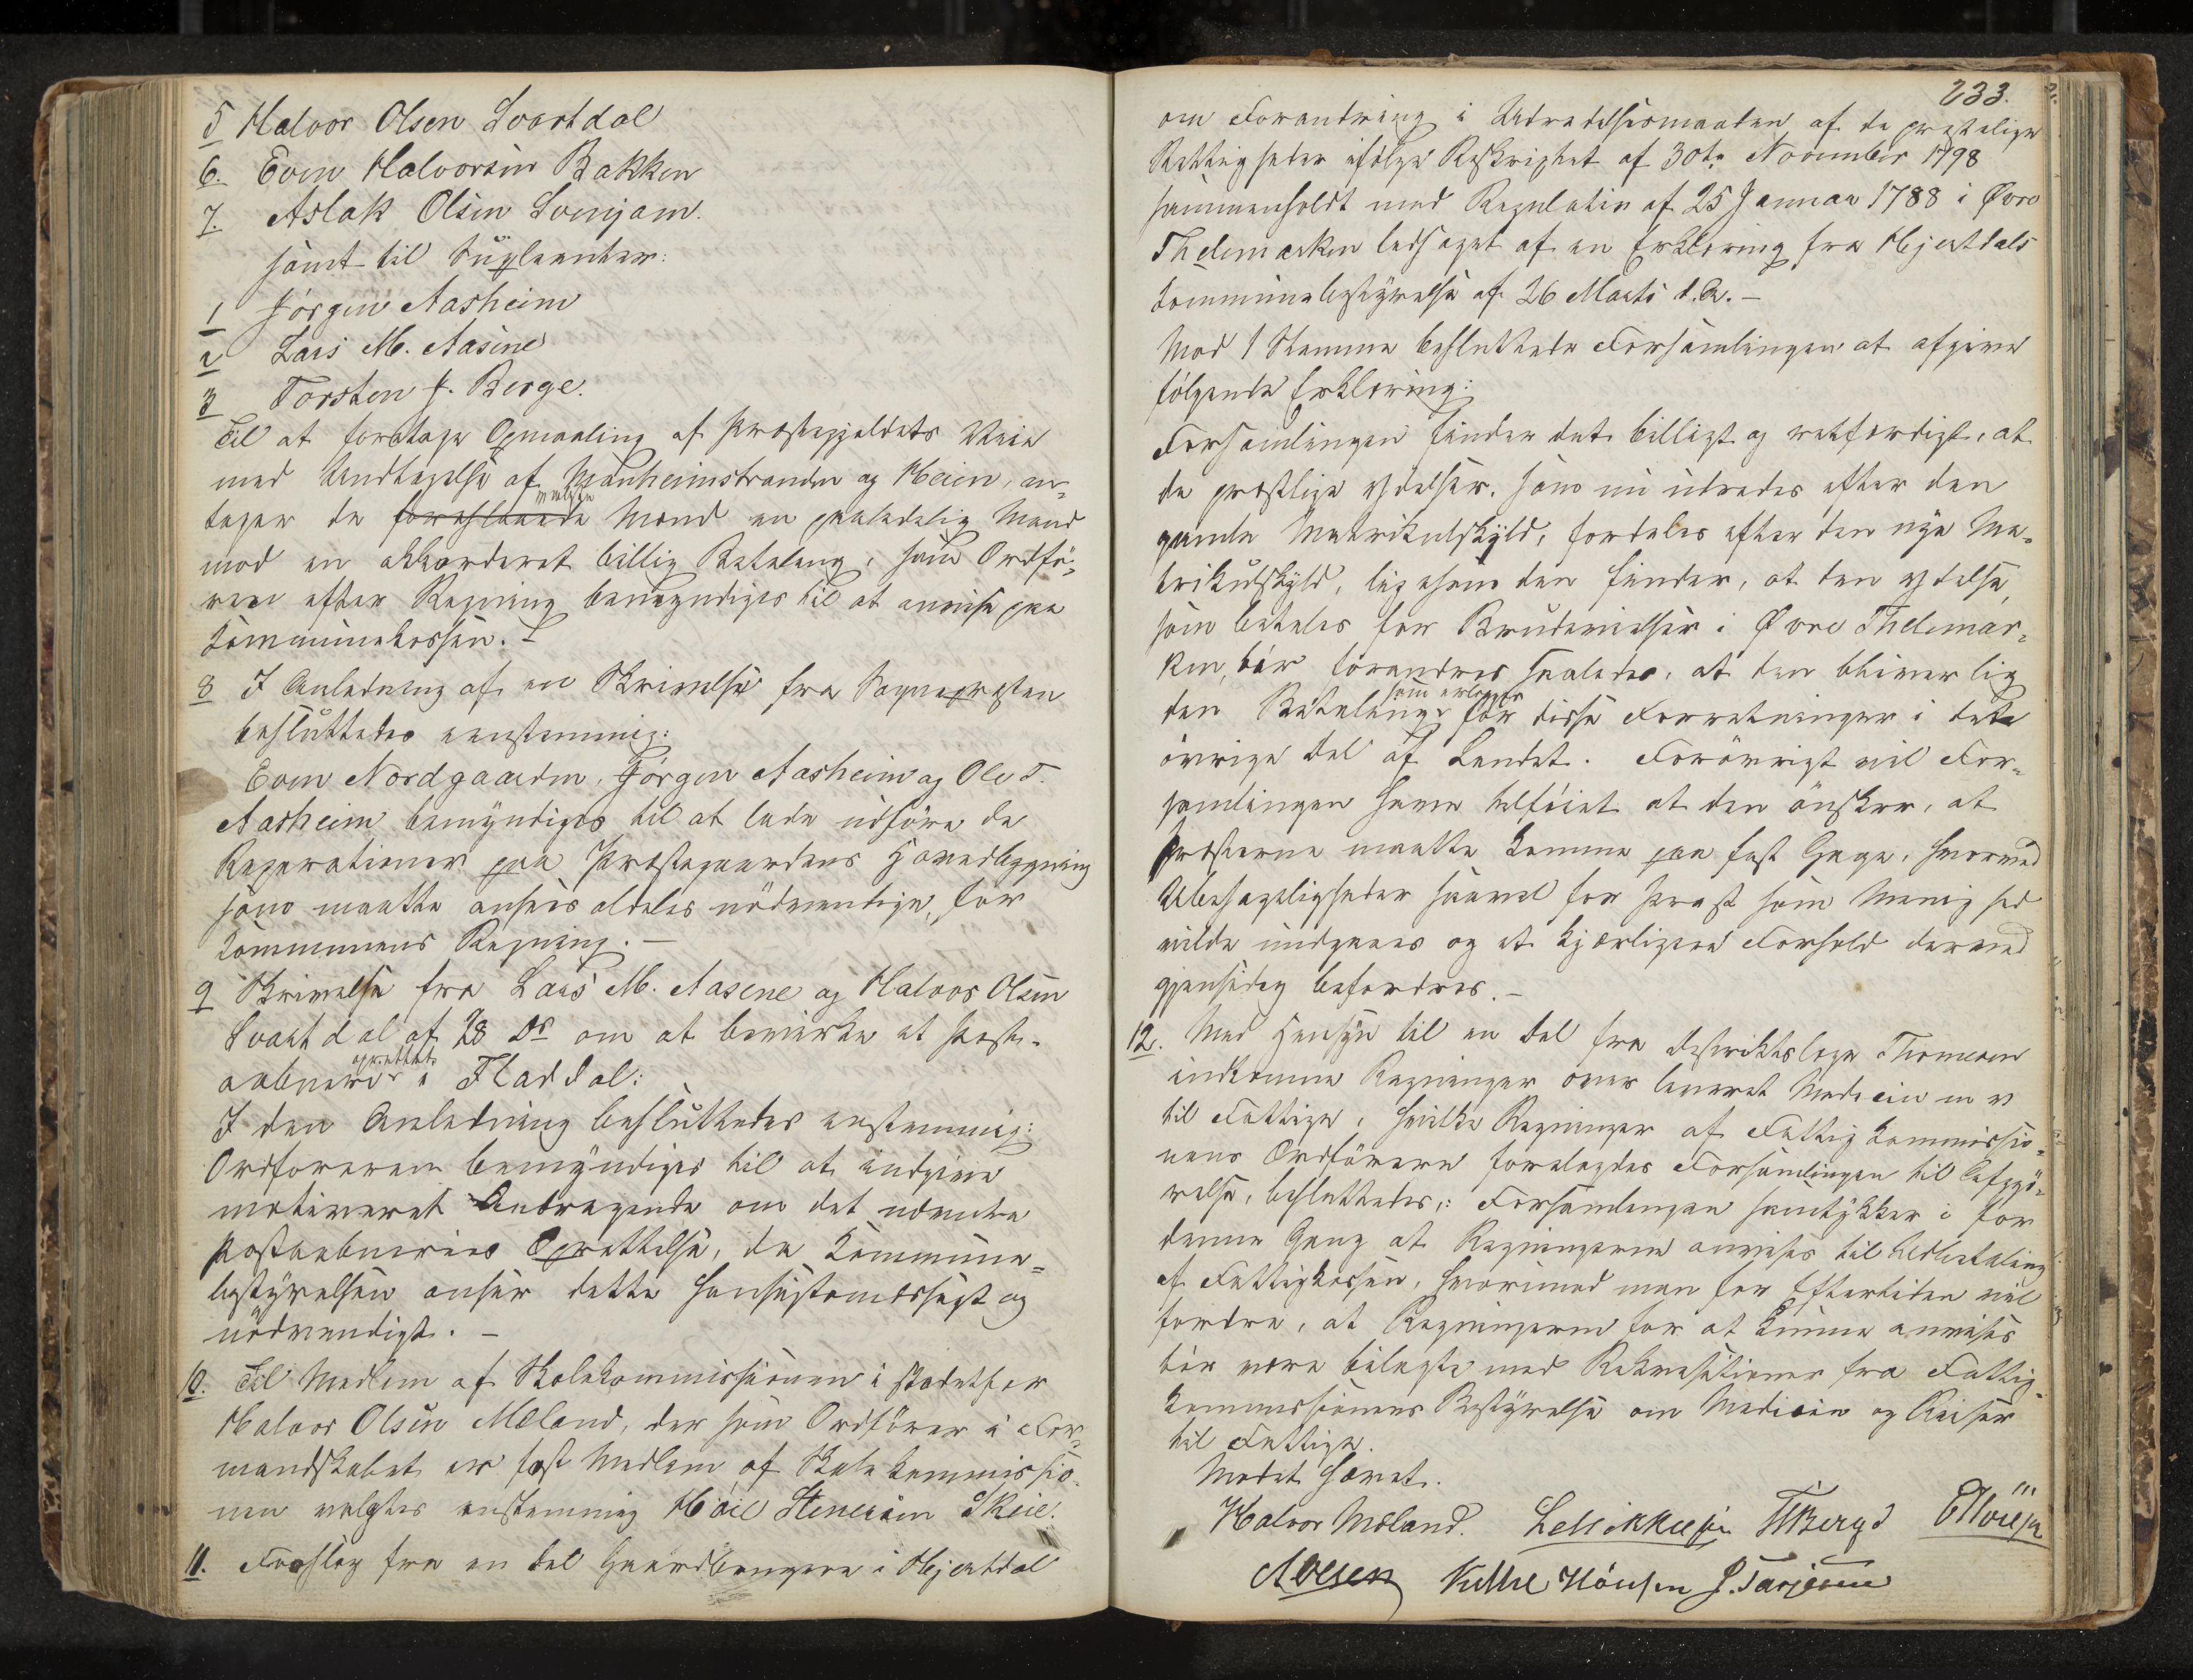 5 Halvor Olsen Svartdal
6. Even Halvorsen Bakken
7. Aslak Olsen Svenjam.
samt til Supleanter:
1 Jörgen Aasheim
2 Lars M. Aasine
3 Torsten J. Berge.
Til at foretage Opmaaling af Præstegjeldets Veie
med Undtagelse af Manheimstranden og Heien, an-
tager de foreslaaede valgte Mænd en paalidelig Mand
mod en akkorderet billig Betaling, som Ordfö-
reren efter Regning bemyndiges til at anvise paa
Kommunekassen. -
8 I Anledning af en Skrivelse fra Sognepræsten
besluttedes eenstemmig:
Even Nordgaarden, Jörgen Aasheim og Ole T.
Aasheim bemyndiges til at lade udföre de
Reparationer paa Præstegaardens Hovedbygning
som maatte ansees aldeles nödvendige, for
Kommunens Regning. -
9 Skrivelse fra Lars M. Aasene og Halvor Olsen
Svartdal af 28 Ds om at bevirke et Post-
aabneri oprettet i Flatdal:
I den Anledning besluttedes enstemmig:
Ordföreren bemyndiges til at indgive
motiveret Andragende om det nævnte
Postaabneries Oprettelse, da Kommune-
bestyrelsen anser dette hensigtsmæssigt og
nödvendigt. -
10. Til Medlem af Skolekommissionen i Stedet for
Halvor Olsen Mæland, der som Ordförer i For-
mandskabet er fast Medlem af Skolekommissio-
nen valgtes enstemmig Höie Stenersen Skeie.
11. Forslag fra en Del Gaardbrugere i Hjertdal
233.
om Forandring i Udredelsesmaaden af de præstelige
Rettigheder ifölge Reskriptet af 30te November 1798
sammenholdt med Regulativ af 25 Januar 1788 i Øvre
Thelemarken ledsaget af en Erklæring fra Hjertdals
Kommunebestyrelse af 26 Marts d. A. -
Mod 1 Stemme besluttede Forsamlingen at afgive
fölgende Erklæring:
Forsamlingen finder det billigt og retfærdigt, at
de præstlige Ydelser, som nu udredes efter den
gamle Matrikulskyld, fordeles efter den nye Ma-
trikulskyld, ligesom den finder, at den Ydelse,
som betales for Brudevielser i Øvre Thelemar-
ken, bör forandres saaledes, at den bliver lig
den Betaling som erlægges for disse Forretninger i den
övrige Del af Landet. Forövrigt vil For-
samlingen have tilföiet at den önsker, at
Præsterne maatte komme paa fast Gage, hvorved
Ubehageligheder saavel for Præst som Menighed
vilde undgaaes og et kjærligere Forhold derved
gjensidig befordres. -
12. Med Hensyn til en Del fra Distriktslæge Thomesen
indkomne Regninger over leveret Medecin m v
til Fattige, hvilke Regninger af Fattigkommissio-
nens Ordförer forelagdes Forsamlingen til Afgjö-
relse, besluttedes: Forsamlingen samtykker i for
denne Gang at Regningerne anvises til Udbetaling
af Fattigkassen, hvorimod man for Eftertiden vil
fordre, at Regningerne for at kunne anvises
bör være bilagte med Rekvisitioner fra Fattig-
kommissionens Bestyrelse om Medicin og Reiser
til Fattige.
Mödet hævet.
Halvor Mæland. TTBerge
AOlsen Kittil Hönsen J. Tarjesen